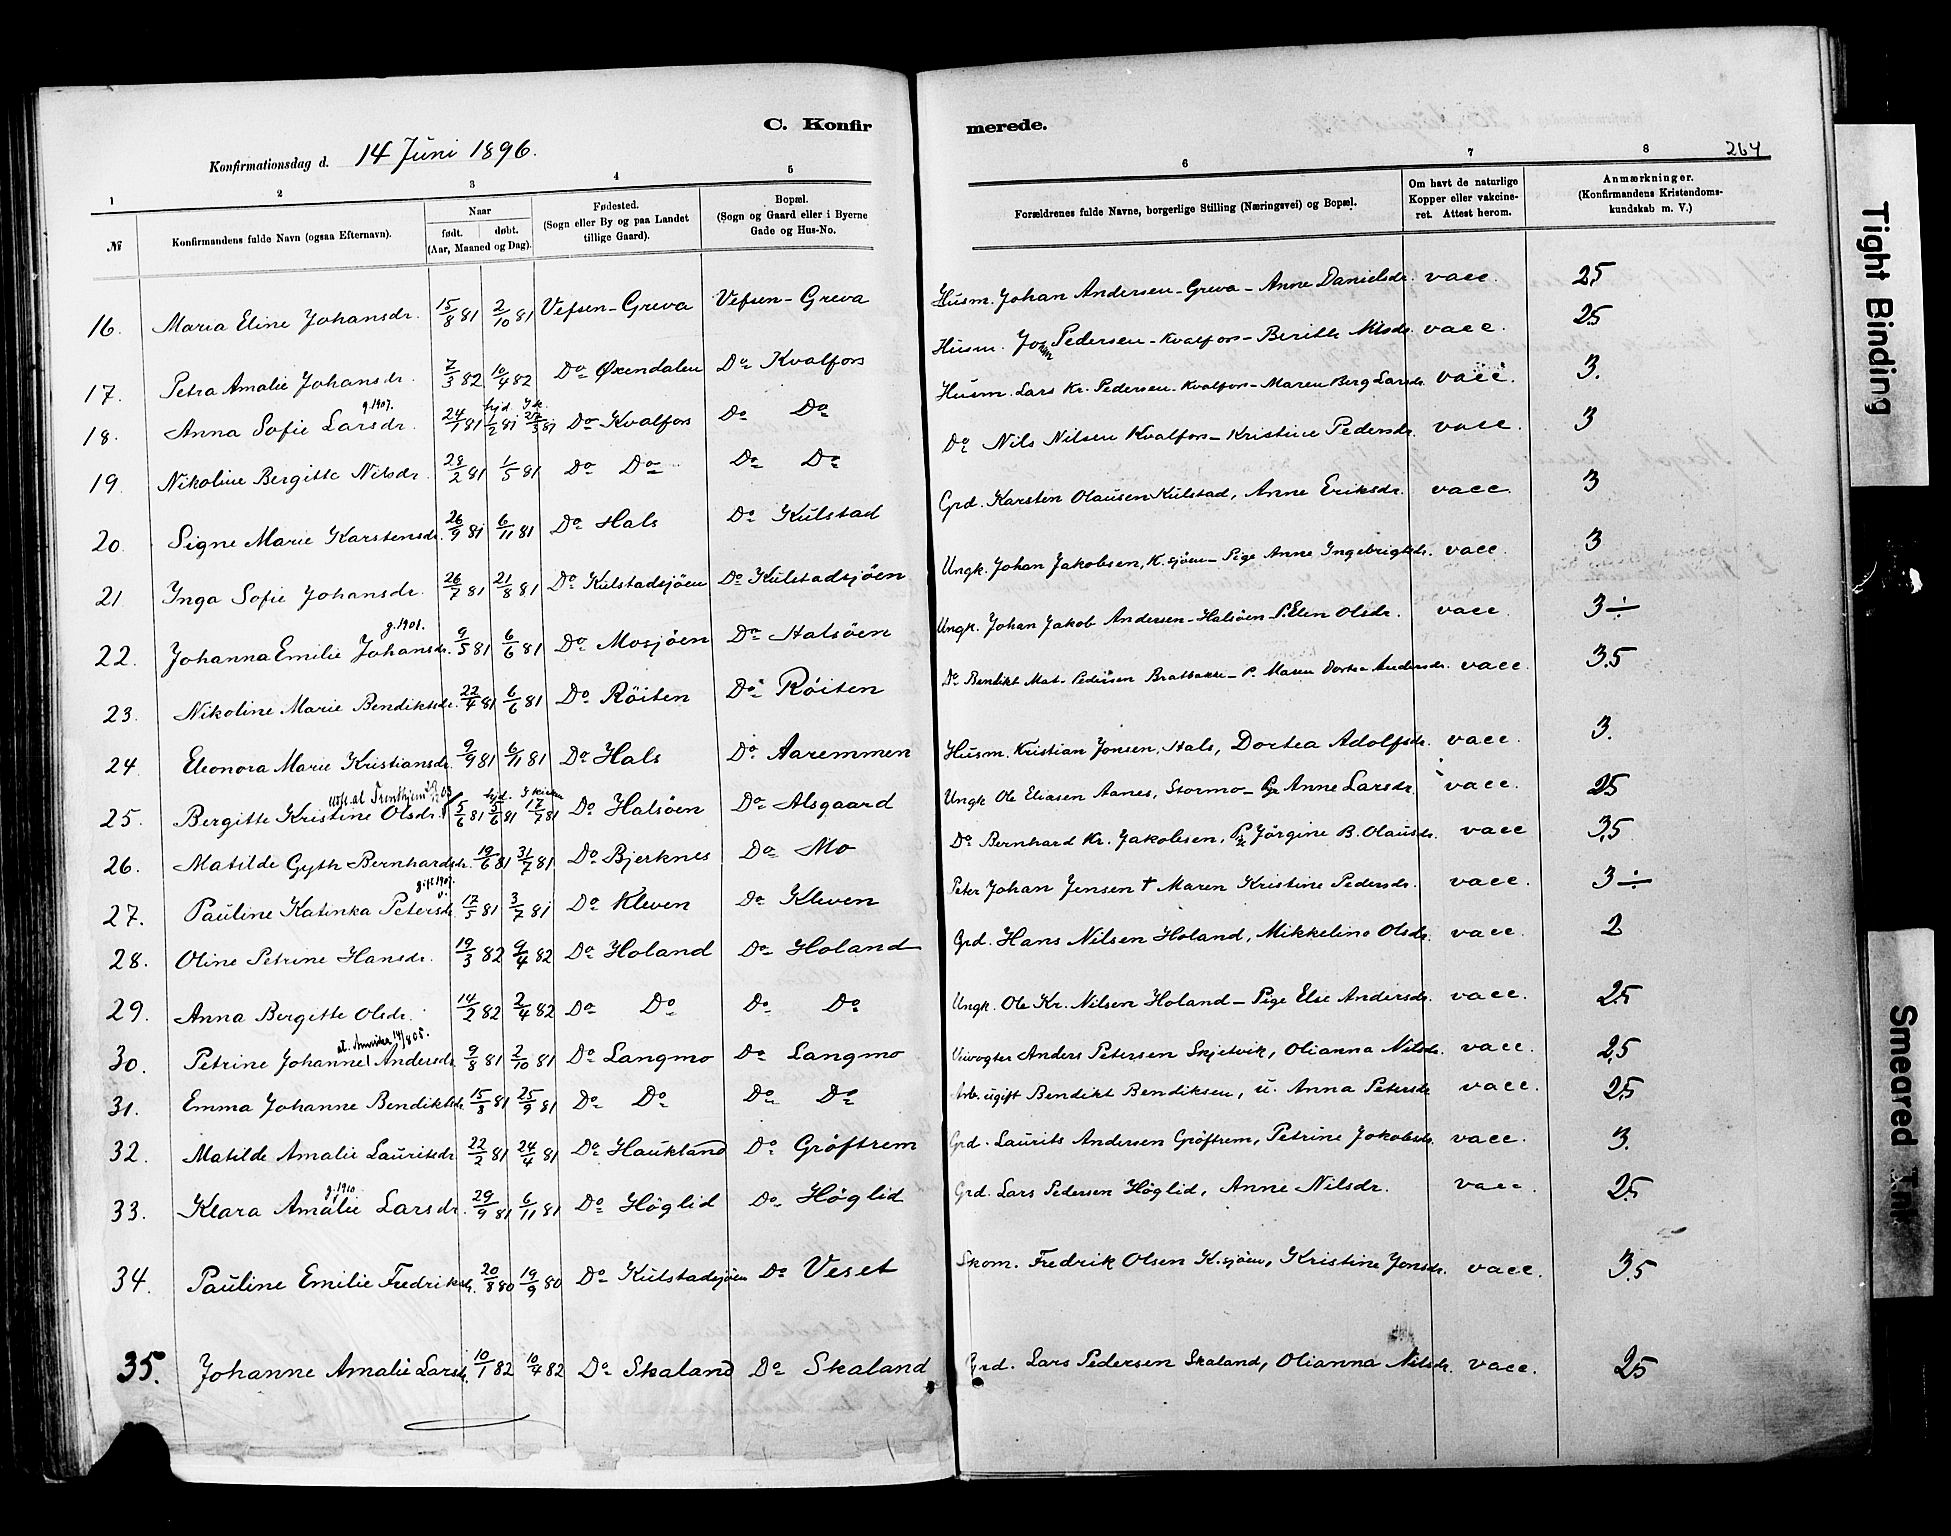 C. Konfirmerede.
Konfirmationsdag d. 14 Juni 1896.
264
1 2 3 4 5 6 7 8
№ Konfirmandens fulde Navn (ogsaa Efternavn). Naar født. døbt. (Aar, Maaned og Dag). Fødested. (Sogn eller By og paa Landet tillige Gaard). Bopæl. (Sogn og Gaard eller i Byerne Gade og Hus-No. Forældrenes fulde Navne, borgerlige Stilling (Næringsvei) og Bopæl. Om havt de naturlige Kopper eller vakcineret. Attest herom. Anmærkninger. (Konfirmandens Kristendomskundskab m. V.)
16. Maria Eline Johansdr. 15/8 81 2/10 81 Vefsen-Greva Vefsen-Greva Husm. Johan Andersen-Greva-Anne Danielsdr. vacc. 2,5
17. Petra Amalie Johansdr. 7/3 82 10/4 82 Do Øxendalen Do Kvalfors Husm. Johan Pedersen-Kvalfors-Berith Nilsdr. vacc. 2,5
g. 1907. hjd. I k.
18. Anna Sofie Larsdr. 24/1 81 1/2 81 27/3 81 Do Kvalfors Do Do Husm. Lars Kr. Pedersen Kvalfors-Maren Berg Larsdr. vacc. 3.
19. Nikoline Bergitte Nilsdr. 28/2 81 1/5 81 Do Do Do Do Do Nils Nilsen Kvalfors-Kristine Pedersdr. vacc. 3
20. Signe Marie Karstensdr. 26/9 81 6/11 81 Do Hals Do Kulstad Grd. Karsten Olausen Kulstad, Anne Eriksdr. vacc. 3
21. Inga Sofie Johansdr. 26/7 81 21/8 81 Do Kulstadsjöen Do Kulstadsjöen Ungk. Johan Jakobsen, K.sjöen-Pige Anne Ingebrigtsdr. vacc. 3
g. 1901.
22. Johanna Emilie Johansdr. 9/5 81 6/6 81 Do Mosjöen Do Halsöen Ungk. Johan Jakob Andersen-Halsöen-P. Elen Olsdr. vacc. 3÷
23. Nikoline Marie Bendiktsdr. 22/4 81 6/6 81 Do Röiten Do Röiten Do Bendikt Mat. Pedersen - P. Maren Dortea Andersdr. vacc. 3,5
24. Eleonora Marie Kristiansdr. 9/9 81 6/11 81 Do Hals Do Aaremmen Husm. Kristian Jonsen, Hals, Dortea Adolfsdr. vacc. 3.
hjd. I kirken
25. Bergitte Kristine Olsdr. 5/6 81 5/6 81 17/7 81 Do Halsöen Do Alsgaard Ungk Ole Eliasen Aanes, Stormo-Pg Anne Larsdr. vacc. 2,5
26. Matilde Gyth Bernhardsdr. 19/6 81 31/7 81 Do Bjerknes Do Mo Do Bernhard Kr. Jakobsen, Pg. Jörgine B. Olausdr. vacc 3,5
gift 1907.
27. Pauline Katinka Petersdr. 17/5 81 3/7 81 Do Kleven Do Kleven Peter Johan Jensen † Maren Kristine Pedersdr. vacc. 3÷
28. Oline Petrine Hansdr. 19/3 82 9/4 82 Do Holand Do Holand Grd. Hans Nilsen Holand, Mikkeline Olsdr. vacc. 2
29. Anna Bergitte Olsdr. 14/2 82 2/4 82 Do Do Do Do Ungk. Ole Kr. Nilsen Holand-Pige Else Andersdr. vacc. 2,5
at. Amerika 14/8 05.
30. Petrine Johanne Andersdr. 9/8 81 2/10 81 Do Langmo Do Langmo Anders Petersen Skjetvik, Olianna Nilsdr. vacc. 2,5
31. Emma Johanne Bendiktsdr. 15/8 81 25/9 81 Do Do Do Do Arb. ugift Bendikt Bendiksen, u. Anna Petersdr vacc. 2,5
32. Matilde Amalie Lauritsdr. 22/2 81 24/4 81 Do Haukland Do Gröftrem Grd. Laurits Andersen Gröftrem, Petrine Jakobsdr. vacc. 3.
g. 1910
33. Klara Amalie Larsdr. 29/9 81 6/11 81 Do Höglid Do Höglid Grd. Lars Pedersen Höglid, Anne Nilsdr. vacc. 2,5
34. Pauline Emilie Fredriksdr. 20/8 80 19/9 80 Do Kulstadsjöen Do Veset Skom. Fredrik Olsen K.sjöen, Kristine Jonsdr. vacc. 3,5
35. Johanne Amalie Larsdr. 10/1 82 10/4 82 Do Skaland Do Skaland Grd. Lars Pedersen Skaland, Olianna Nilsdr. vacc. 2,5
Tight Binding
Smeared Ink